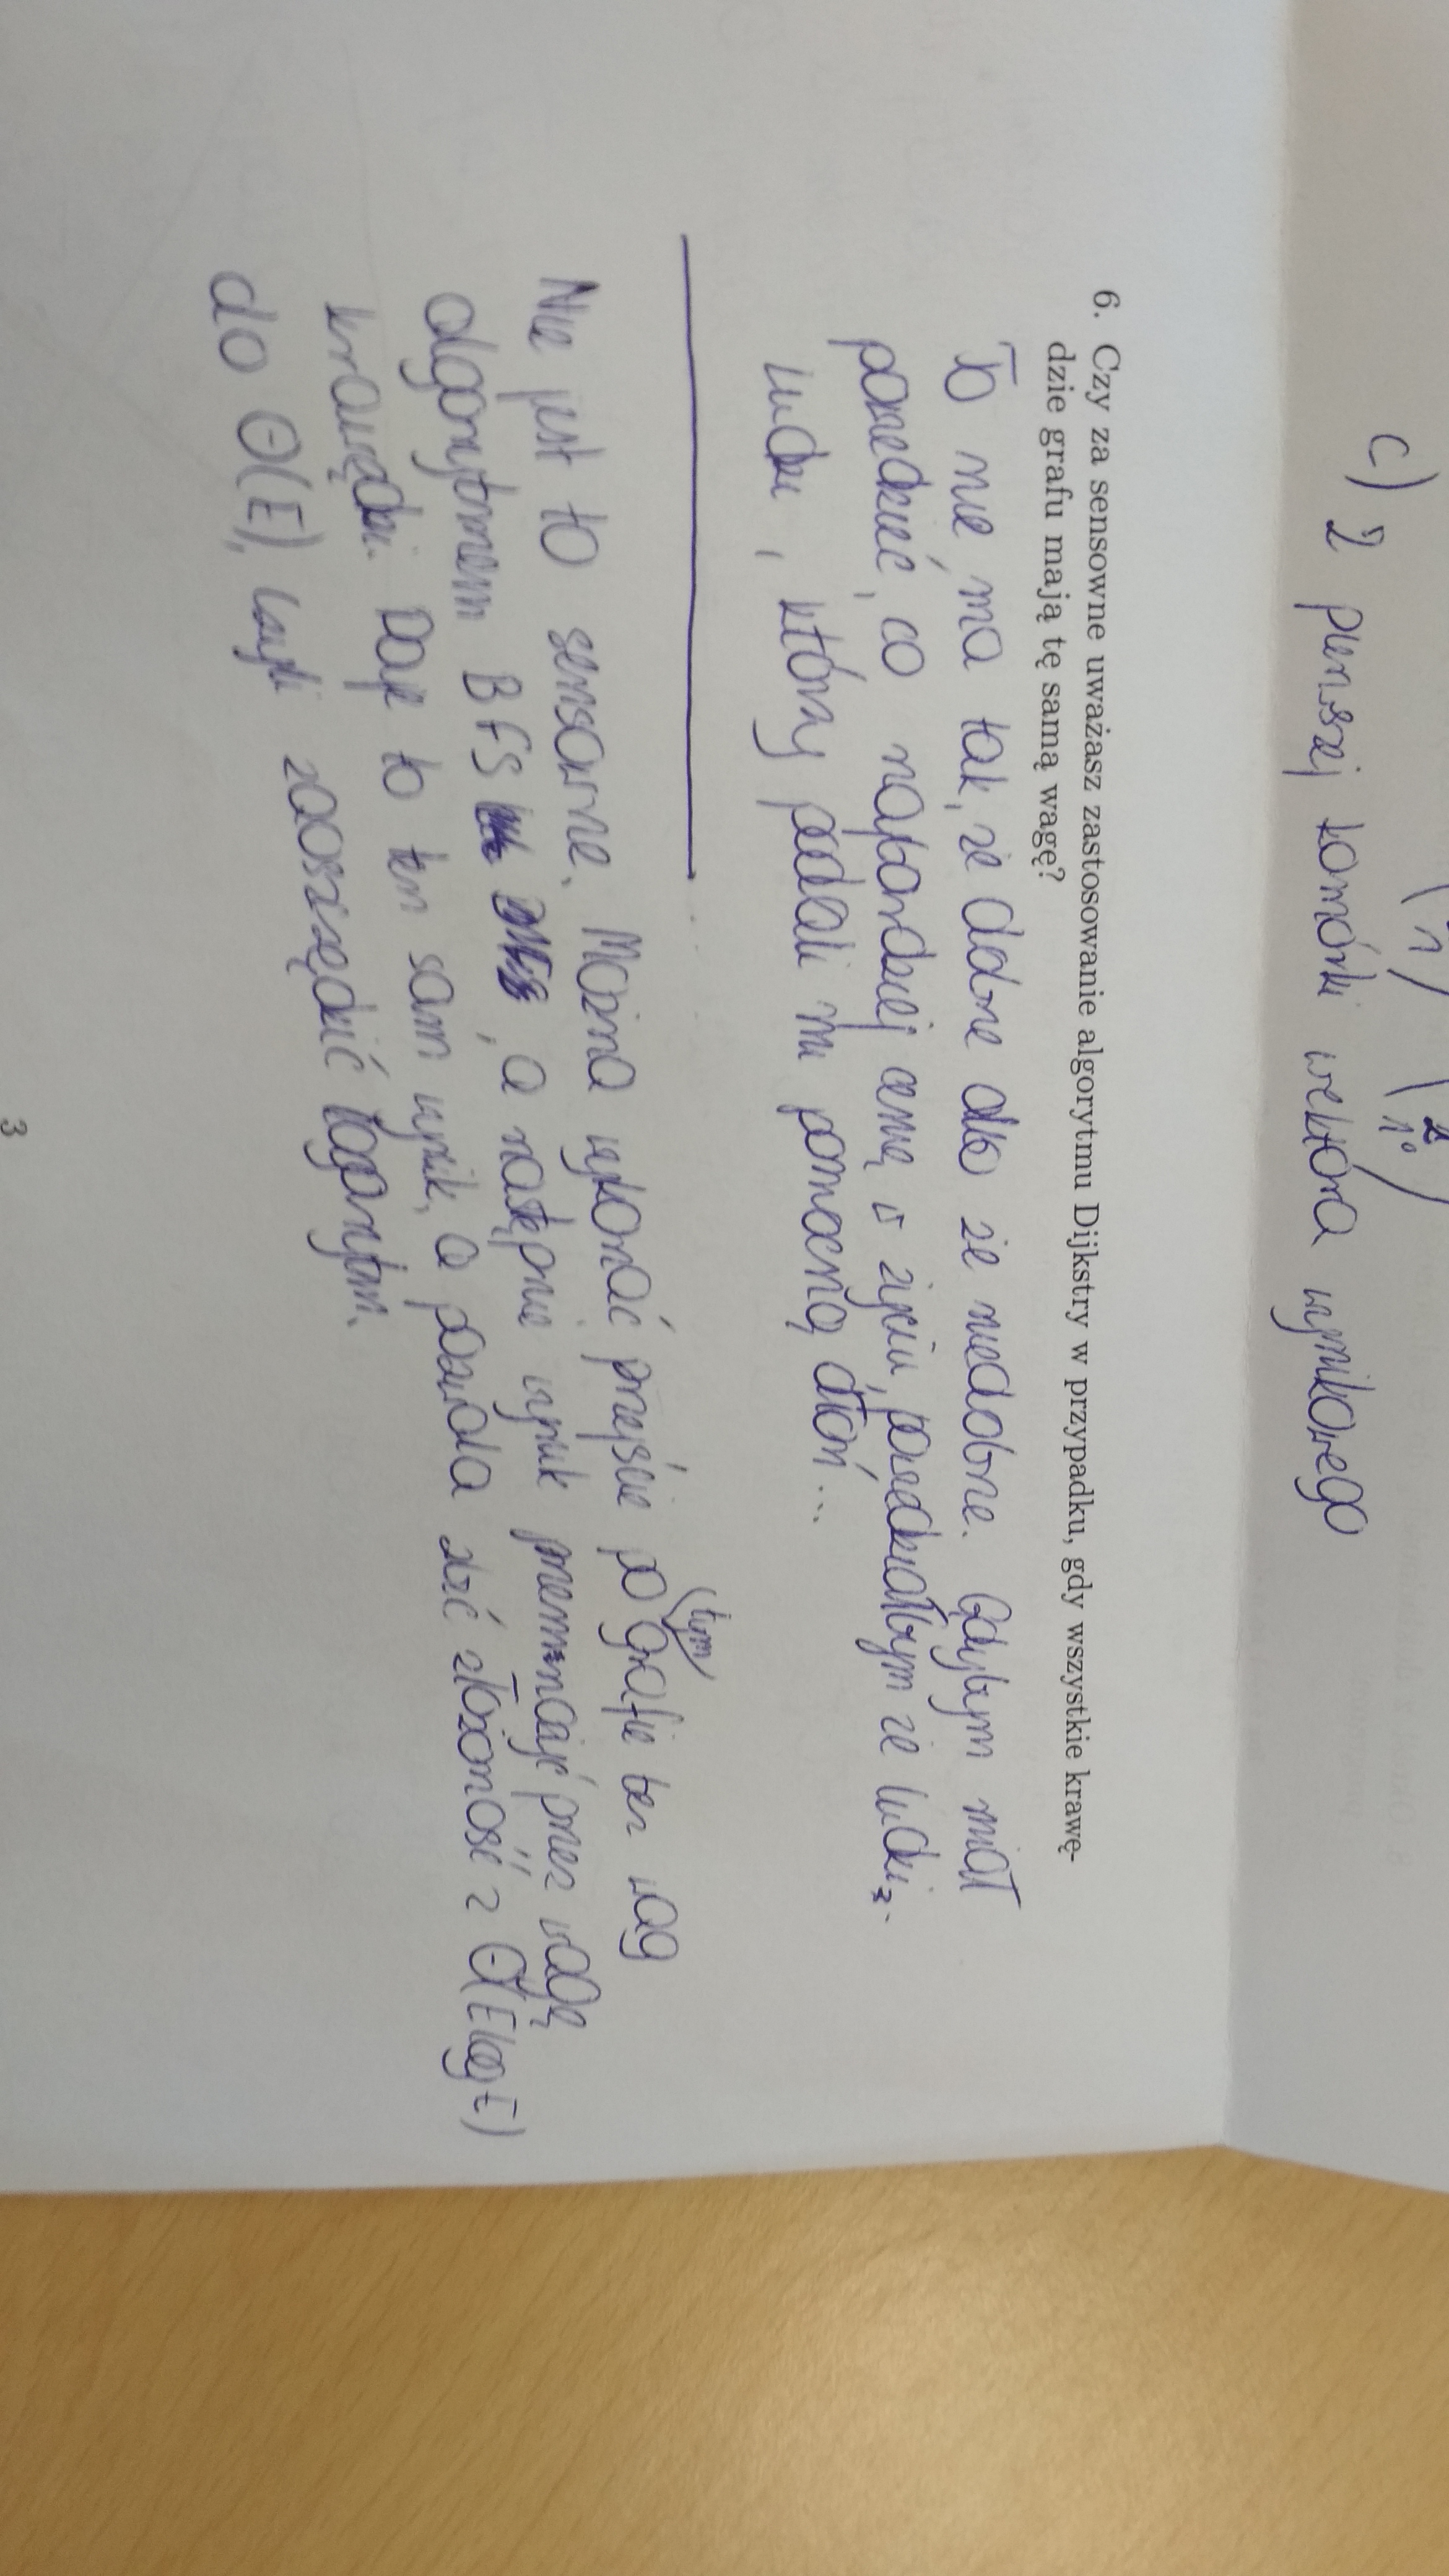 ( 1 ) ( 2 1⁰ )
c) Z pierwszej komórki wektora wynikowego
6. Czy za sensowne uważasz zastosowanie algorytmu Dijkstry w przypadku, gdy wszystkie krawę-
dzie grafu mają tę samą wagę?
To nie ma tak, że dobrze albo że niedobrze. Gdybym miał
powiedzieć, co najbardziej cenię w życiu, powiedziałbym że ludzi..
Ludzi, którzy podali mi pomocną dłoń...
(tym)
Nie jest to sensowne. Można wykonać przejście po grafie bez wag
algorytmem BFS, a następnie wynik przemnożyć przez wagę
krawędzi. Daje to ten sam wynik, a pozwala zbić złożoność z Θ(E log E)
do Θ(E), czyli zaoszczędzić logarytm.
3